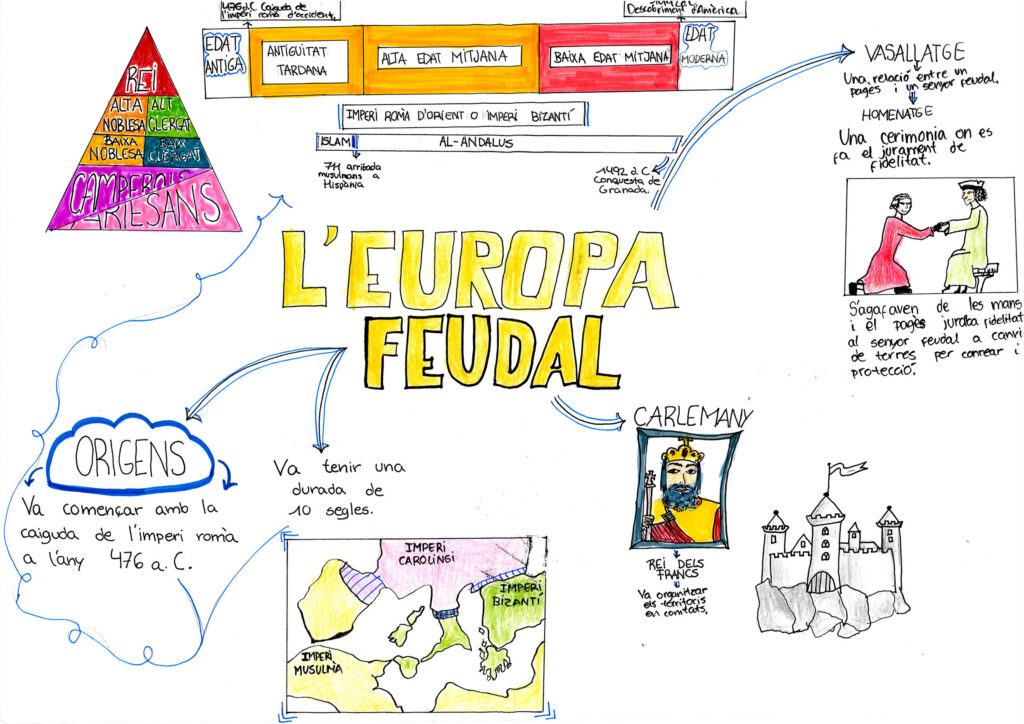 476 d.C Caiguda de
l'imperi romà d'occident.
Descobriment d'Amèrica
EDAT
ANTIGA
ANTIGUITAT
TARDANA
ALTA EDAT MITJANA
BAIXA EDAT MITJANA
EDAT
MODERNA
IMPERI ROMÀ D'ORIENT O IMPERI BIZANTÍ
ISLAM
AL-ANDALUS
711 arribada
musulmans a
Hispània
1492 d.C
Conquesta de
Granada.
REI
ALTA
NOBLESA
ALT
CLERGAT
BAIXA
NOBLESA
BAIX
CLERGAT
CAMPEROLS
ARTESANS
VASALLATGE
Una relació entre un
pagès i un senyor feudal.
HOMENATGE
Una cerimonia on es
fa el jurament de
fidelitat.
S'agafaven de les mans
i el pagès jurava fidelitat
al senyor feudal a canvi
de terres per conrear i
protecció.
L'EUROPA
FEUDAL
ORIGENS
Va començar amb la
caiguda de l'imperi romà
a l'any 476 a.C.
Va tenir una
durada de
10 segles.
IMPERI
CAROLINGI
IMPERI
BIZANTÍ
IMPERI
MUSULMÀ
CARLEMANY
REI DELS
FRANCS
Va organitzar
els territoris
en comtats.